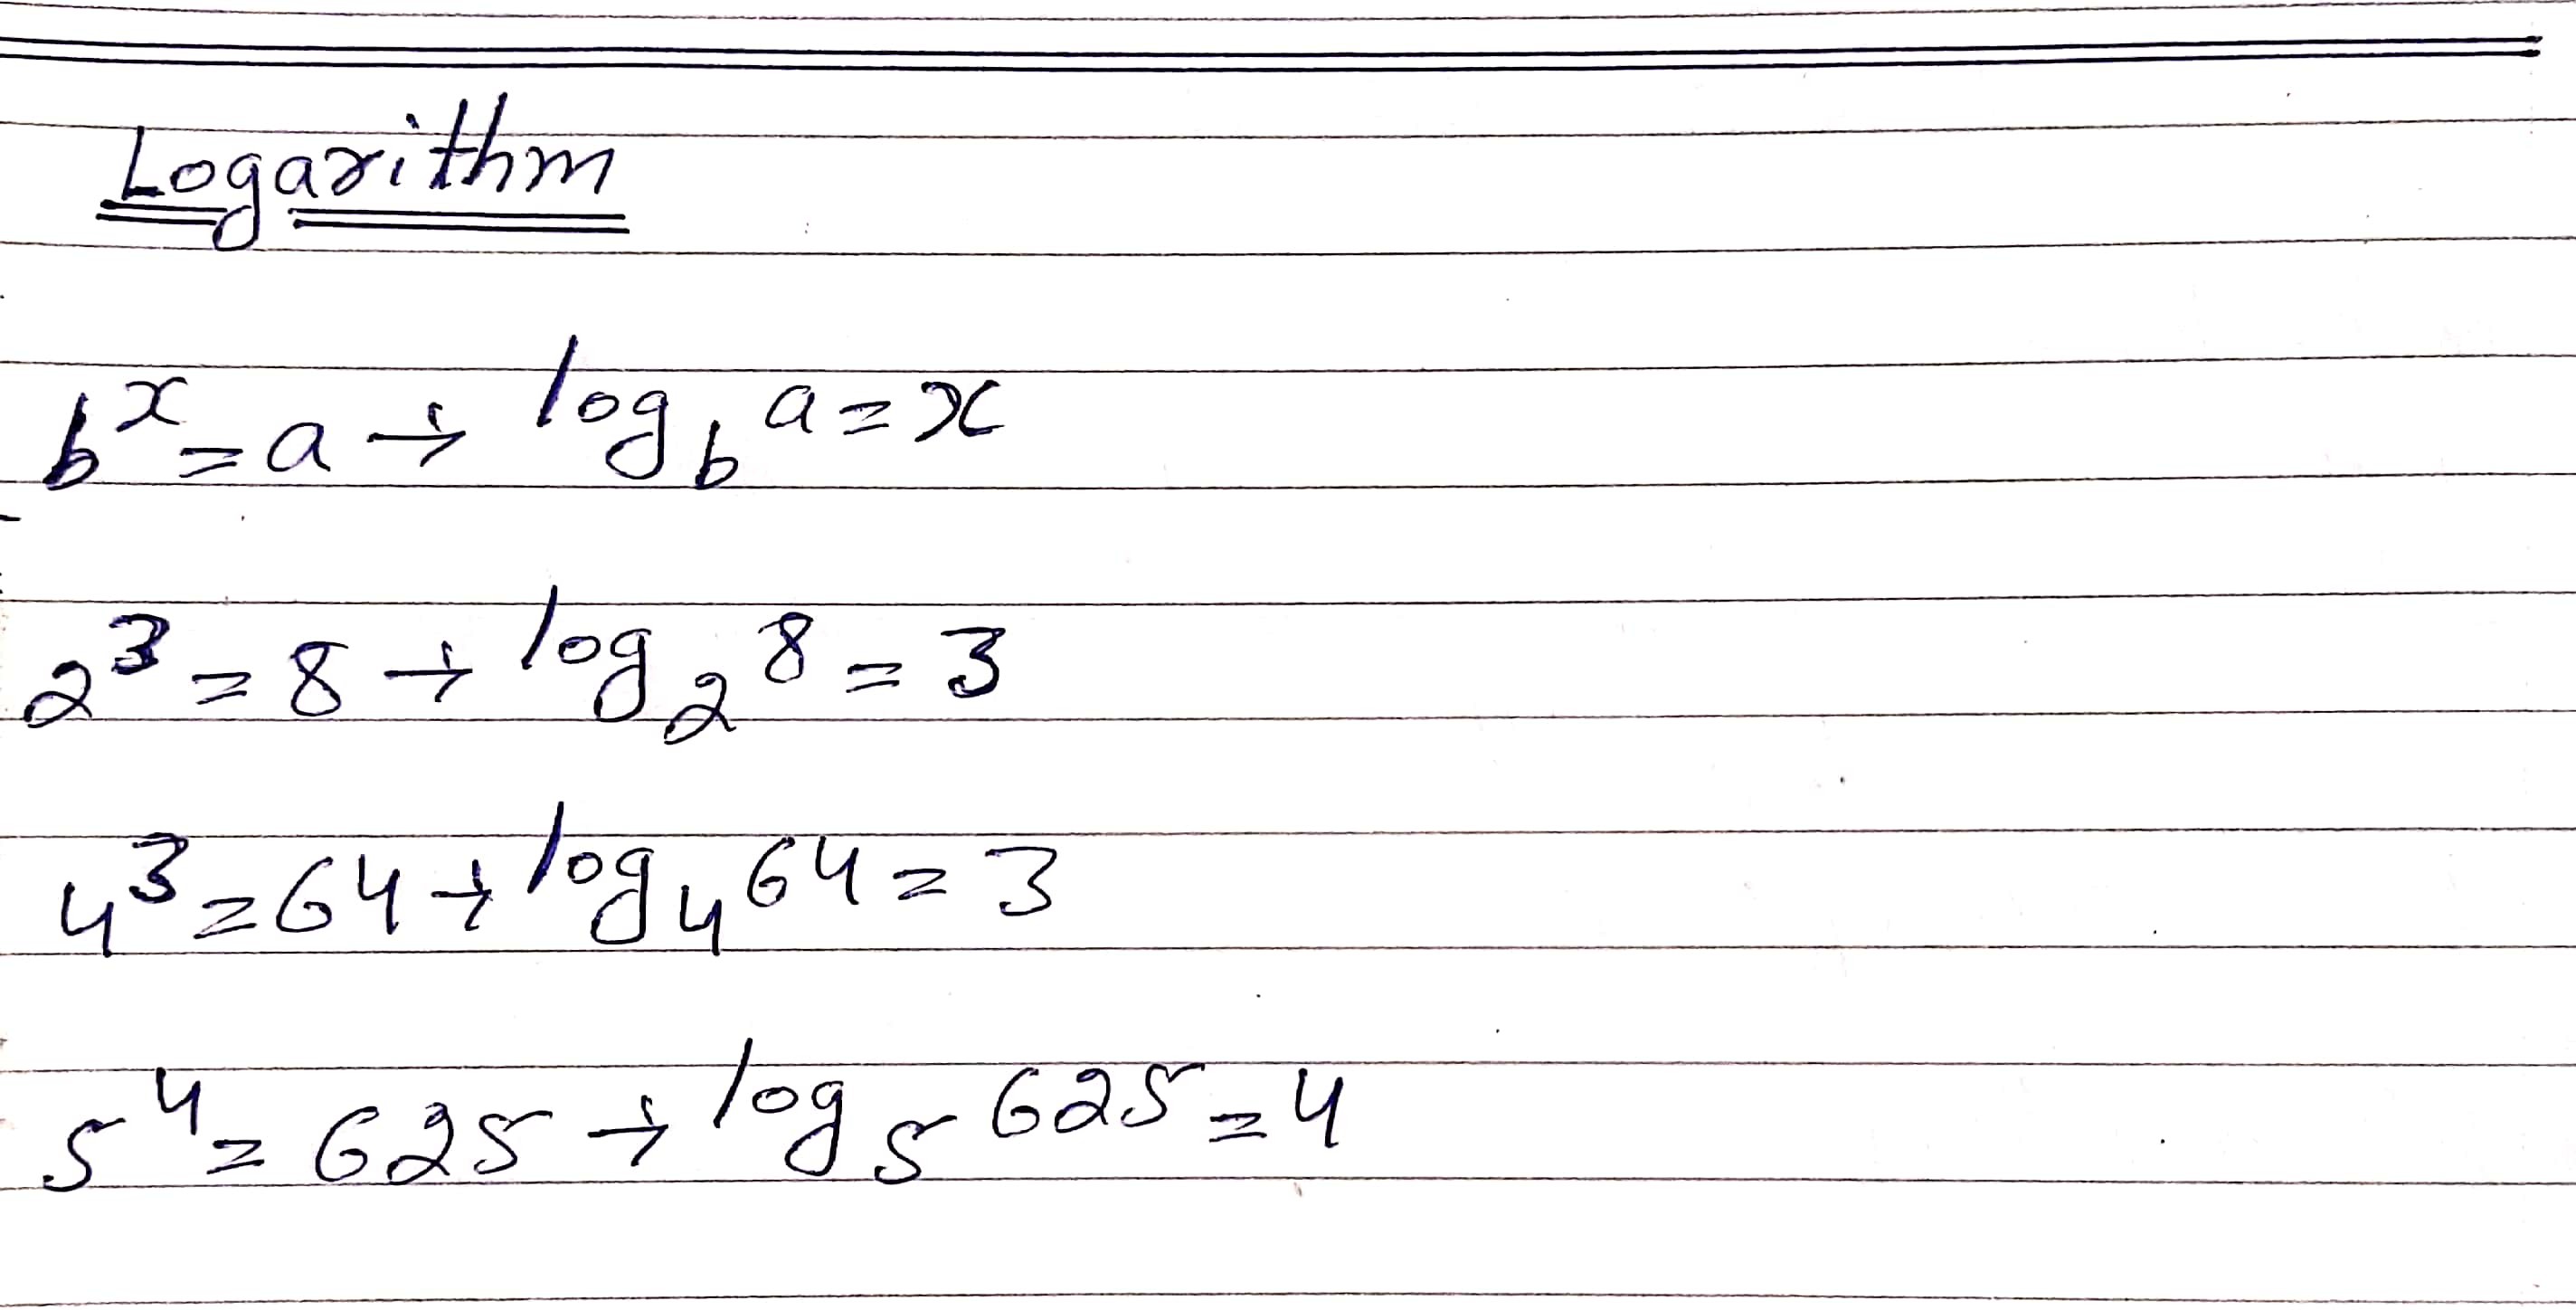 Logarithm
b^x = a → log_b a = x
2^3 = 8 → log_2 8 = 3
4^3 = 64 → log_4 64 = 3
5^4 = 625 → log_5 625 = 4